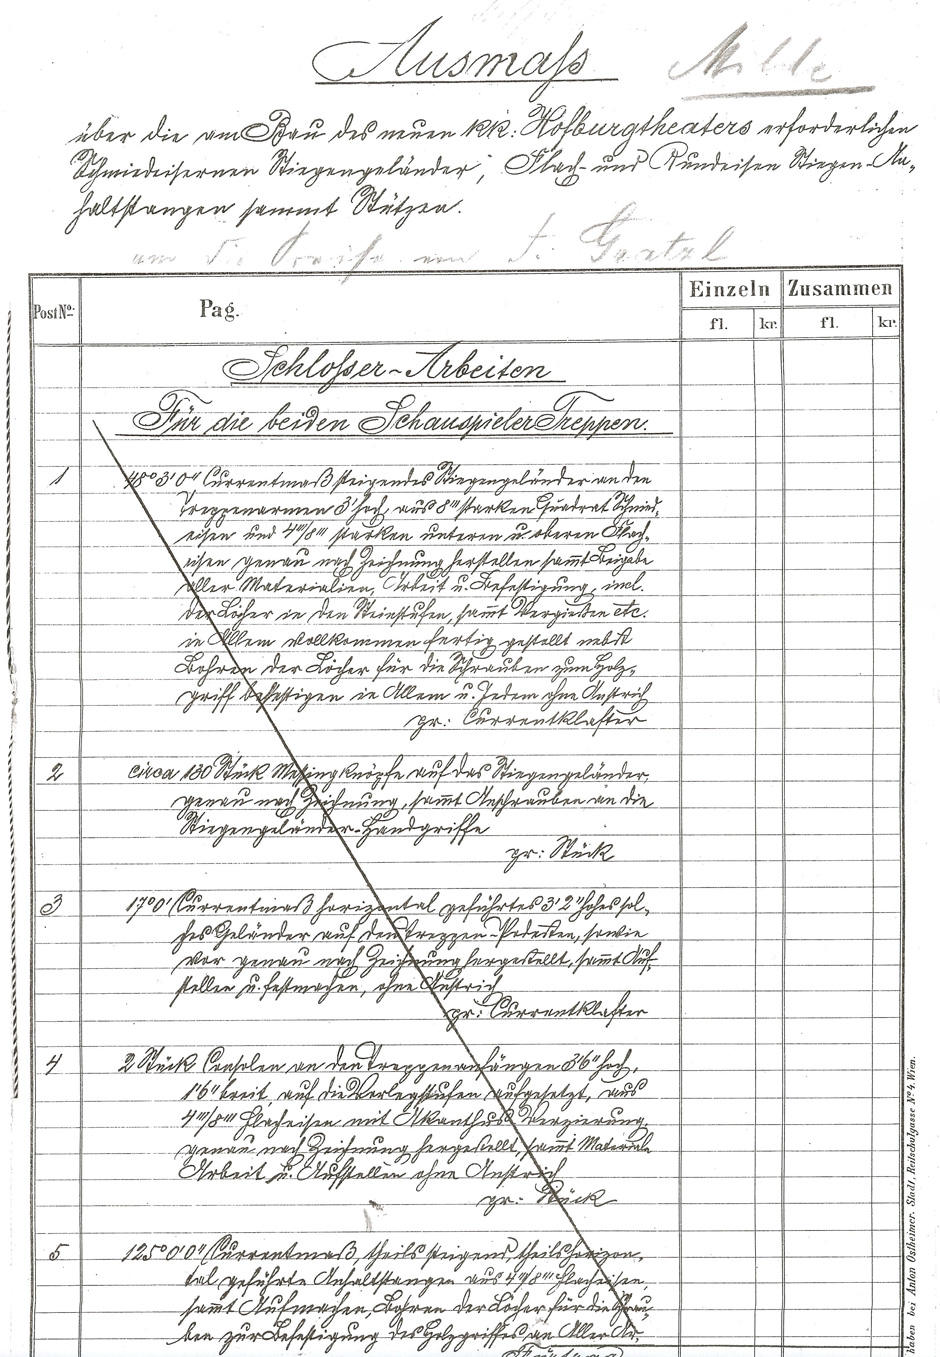 Ausmaß
Milde
über die am Bau des neuen kk: Hofburgtheaters erforderlichen
Schmiedeisernen Stiegengeländer, Flach- und Rundeisen Stiegen-An-
haltstangen sammt Stützen.
Post No. Pag. Einzeln Zusammen
fl. kr. fl. kr.
Schlosser-Arbeiten
Für die beiden Schauspieler Treppen.
1 48° 3' 0" Currentmaß steigendes Stiegengeländer an den
Treppenarmen 3' hoch, aus 8''' starken Quadrat Schmied-
eisen und 4'''/8''' starken unteren u. oberen Flach-
eisen genau nach Zeichnung herstellen sammt Beigabe
aller Materialien, Arbeit u. Befestigung, incl.
der Löcher in den Steinstufen, sammt Vergießen etc.
in Allem vollkommen fertig gestellt nebst
Bohren der Löcher für die Schrauben zum Holz-
griff befestigen in Allem u. Jedem ohne Anstrich
pr: Currentklafter
2 circa 130 Stück Messingknöpfe auf das Stiegengeländer,
genau nach Zeichnung, sammt Anschrauben an die
Stiegengeländer-Handgriffe
pr: Stück
3 17° 0' Currentmaß horizontal geführtes 3' 2" hohes sol-
ches Geländer auf den Treppen-Podesten, sowie
vor genau nach Zeichnung hergestellt, sammt Auf-
stellen u. festmachen, ohne Anstrich
pr: Currentklafter
4 2 Stück Consolen an den Treppenanfängen 3' 6" hoch,
1' 6" breit, auf die Vorlegstufen aufgesetzt, aus
4'''/8''' Flacheisen mit Akanthus Verzierung
genau nach Zeichnung hergestellt, sammt Materiale
Arbeit u. Aufstellen ohne Anstrich
pr: Stück
5 125° 0' 0" Currentmaß, theils steigend, theils horizon-
tal geführte Anhaltstangen aus 4'''/8''' Flacheisen,
sammt Aufmachen, Bohren der Löcher für die Schrau-
ben zur Befestigung des Holzgriffes, an Aller Ar-
haben bei Anton Ostheimer. Stadt, Reitschulgasse No. 4, Wien.